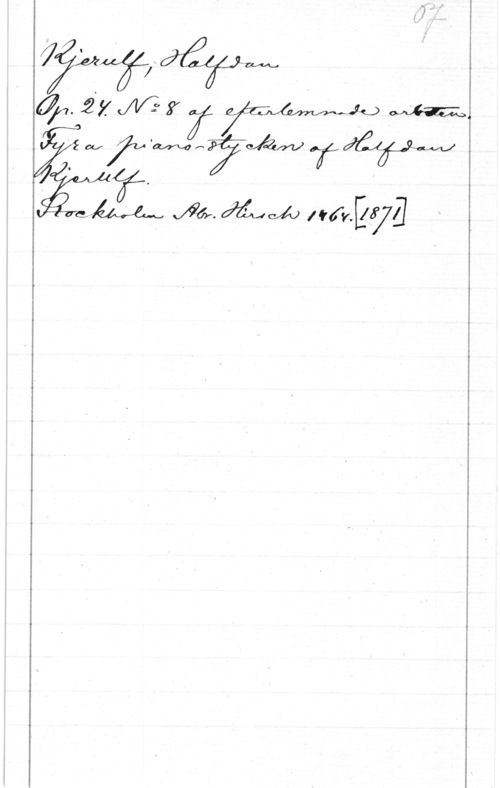 Pf
Kjerulf, Halfdan
Op. 24. No 8 af efterlemnade arbeten.
Fyra piano-stycken af Halfdan
Kjerulf.
Stockholm Abr. Hirsch 1464. [1871]